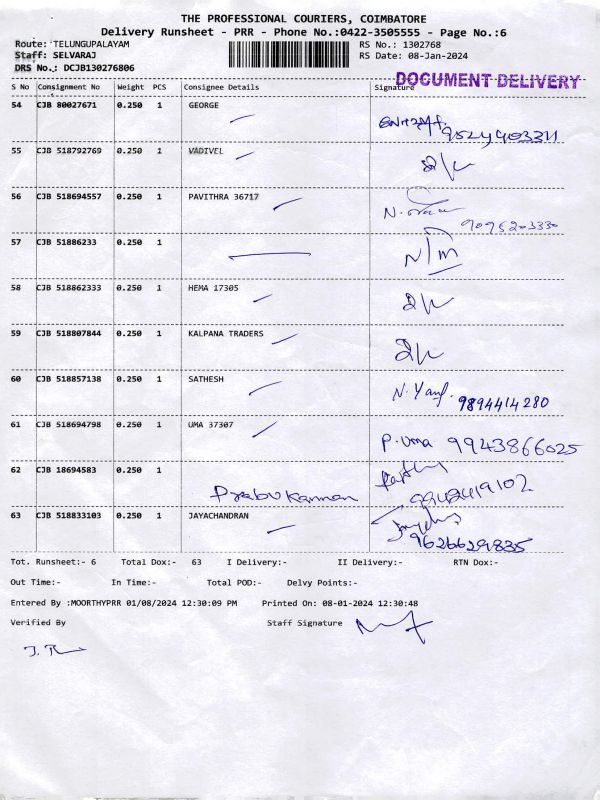 THE PROFESSIONAL COURIERS, COIMBATORE
Delivery Runsheet - PRR - Phone No.:0422-3505555 - Page No.:6
Route: TELUNGUPALAYAM
RS No.: 1302768
Staff: SELVARAJ
RS Date: 08-Jan-2024
DRS No.: DCJB130276806
DOCUMENT DELIVERY
S No Consignment No Weight PCS Consignee Details Signature
54 CJB 80027671 0.250 1 GEORGE
9524903311
55 CJB 518792769 0.250 1 VADIVEL
56 CJB 518694557 0.250 1 PAVITHRA 36717
57 CJB 51886233 0.250 1
58 CJB 518862333 0.250 1 HEMA 17305
59 CJB 518807844 0.250 1 KALPANA TRADERS
60 CJB 518857138 0.250 1 SATHESH
9894414280
61 CJB 518694798 0.250 1 UMA 37307
P. Uma 9943866025
62 CJB 18694583 0.250 1
Prabu Kannan
9942419102
63 CJB 518833103 0.250 1 JAYACHANDRAN
9626629835
Tot. Runsheet:- 6 Total Dox:- 63 I Delivery:- II Delivery:- RTN Dox:-
Out Time:- In Time:- Total POD:- Delvy Points:-
Entered By :MOORTHYPRR 01/08/2024 12:30:09 PM Printed On: 08-01-2024 12:30:48
Verified By Staff Signature